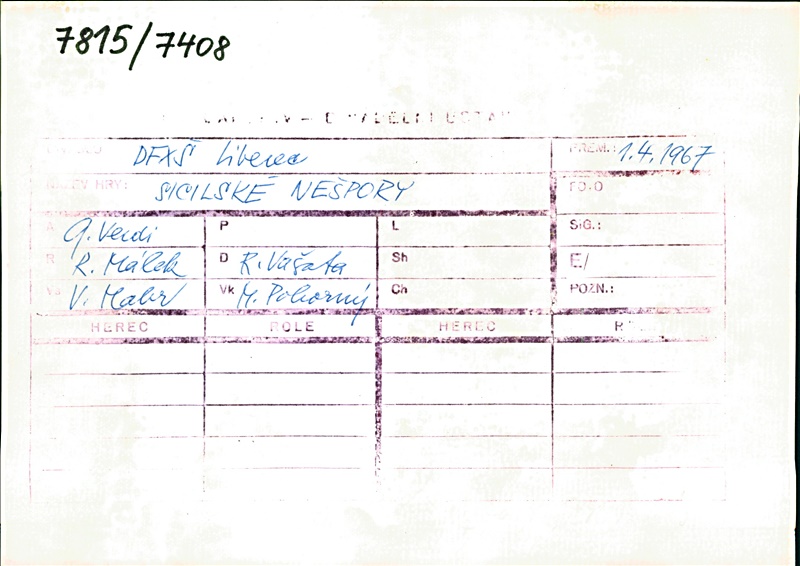 7815/7408
DFXŠ Liberec PREM.: 1.4.1967
HRY: SICILSKÉ NEŠPORY FOTO
A G. Verdi P L SIG.:
R R. Málek D R. Vašata Sh E/
Vs V. Mabr Vk M. Pokorný Ch POZN.:
HEREC ROLE HEREC